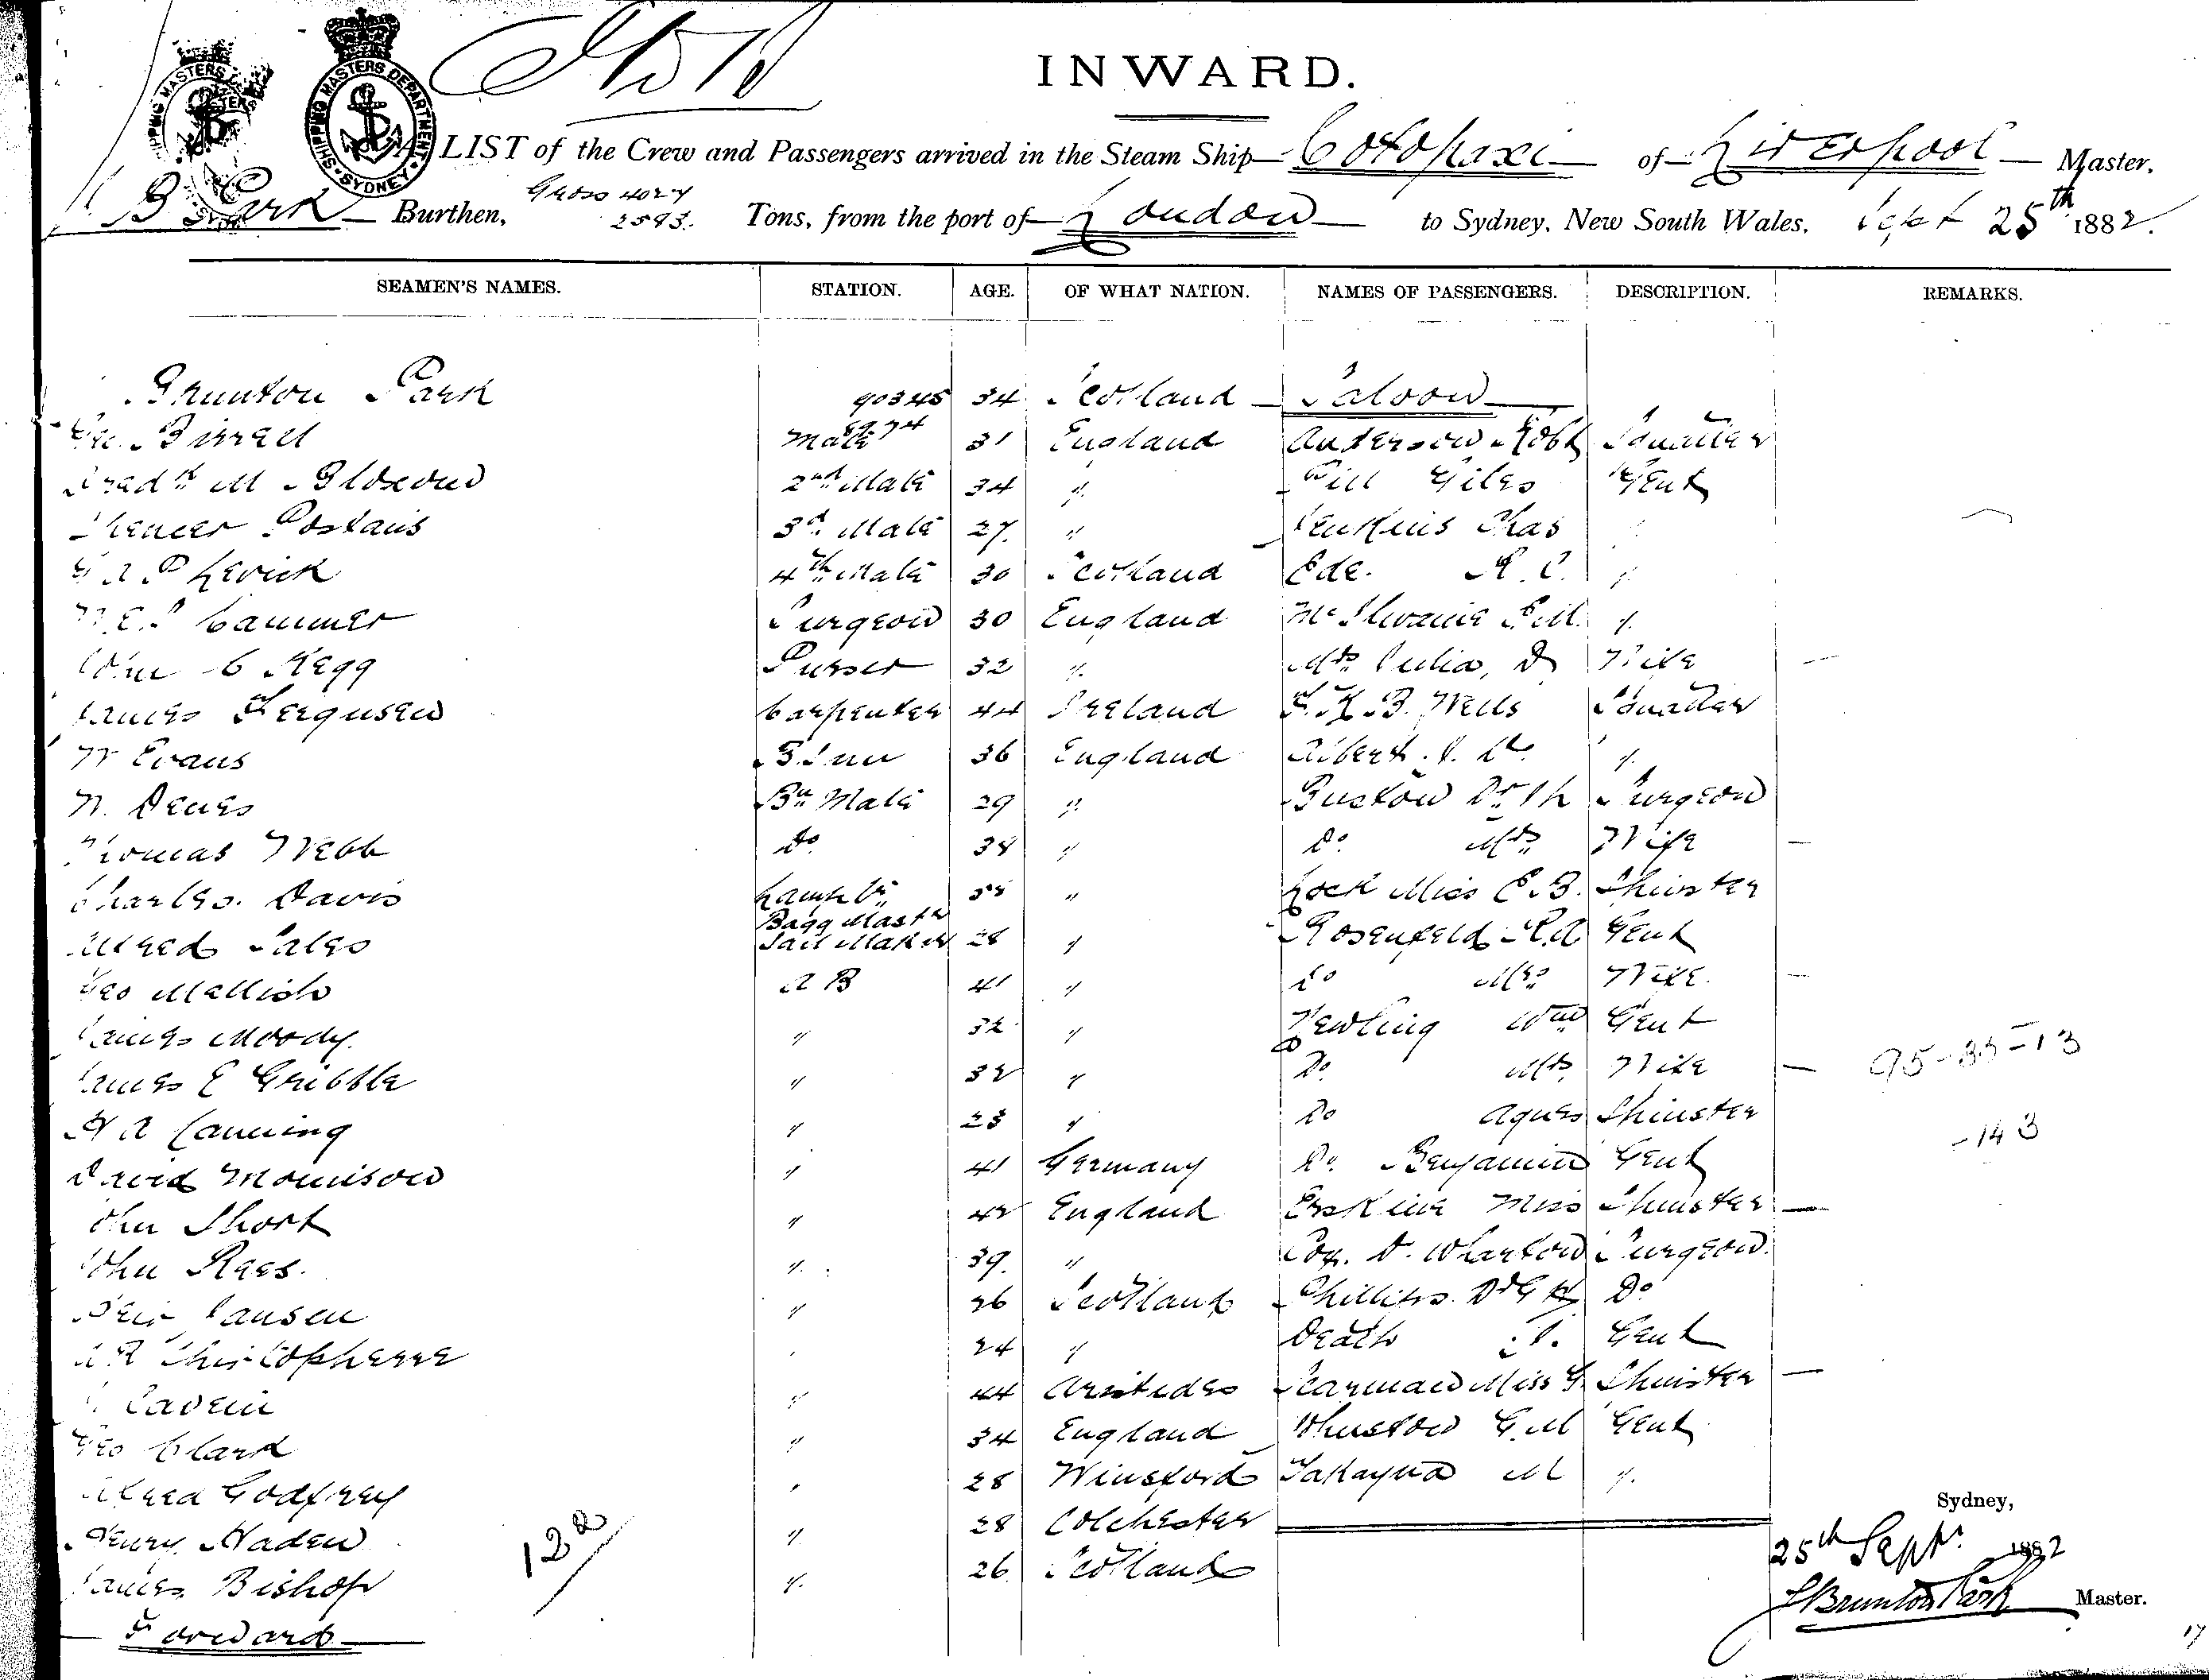 INWARD.
SHIPPING MASTERS DEPARTMENT SYDNEY
A LIST of the Crew and Passengers arrived in the Steam Ship Cotopaxi of Liverpool Master,
B Park Burthen, Gross 4027 2593. Tons, from the port of London to Sydney, New South Wales, Sept 25th 1882.
SEAMEN'S NAMES. STATION. AGE. OF WHAT NATION. NAMES OF PASSENGERS. DESCRIPTION. REMARKS.
Brunton Park 90345 34 Scotland Saloon
Birrell Mate 31 England Anderson Robt Squatter
Fredk M Bloxoud 2nd Mate 34 " Gill Giles Gent
Spencer Postans 3rd Mate 27 " Jenkins Chas "
Levick 4th Mate 30 Scotland Ede. R. C. "
Cammer Surgeon 30 England McIlwraine "
Wm C Kegg Purser 32 " Mrs Julia, Do Wife
James Ferguson Carpenter 44 Ireland F. K. B. Wells Squatter
W Evans Bsun 36 England Albert "
W. Dewes Bn Mate 29 " Buxton Dr Surgeon
Thomas Webb Do 38 " Do Mrs Wife
Charles. Davis Lamp Tr " Lock Miss E. B. Spinster
Bagg Mastr
Alfred Sales Sail Maker 28 " Rosenfeld R.A Gent
Geo Mellish A B 41 " Do Mrs Wife.
James Moody. " 32 " Newling Wm Gent
James E Gribble " 32 " Do Mrs Wife 95-83-13
H A Canning " 23 " Do Agnes Spinster
-143
David Morrison " 41 Germany Do Benjamin Gent
John Short " 42 England Erskine Miss Spinster
John Rees. " 39. " Cox. D. Wharton Surgeon.
Jansen " 26 Scotland Phillips. Dr G H Do
Christopherse " 24 " Death J. Gent
Cavein " 44 Aristedes Scarman Miss G. Spinster
Geo Clark " 34 England Thurston G. M Gent
Alfred Godfrey " 28 Winsford Takayna M "
Sydney,
Henry Haden " 28 Colchester
25th Sept. 1882
James Bishop " 26 Scotland
Brunton Park Master.
Forward
17